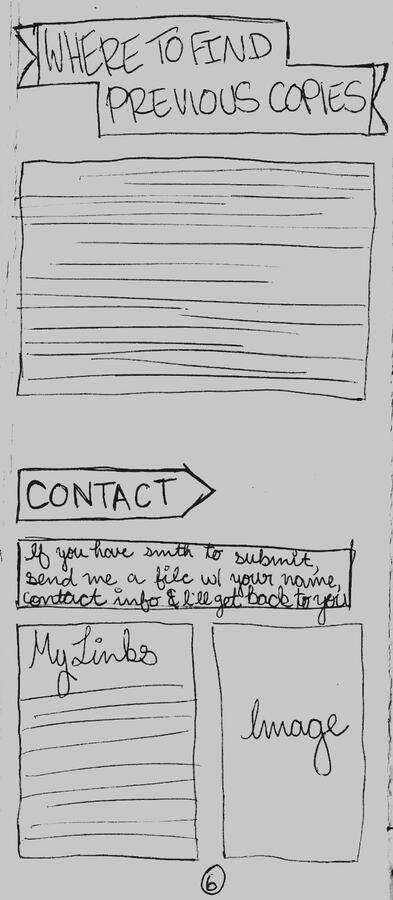 WHERE TO FIND
PREVIOUS COPIES
CONTACT
If you have smth to submit,
send me a file w/ your name,
contact info & I'll get back to you
My Links
Image
6